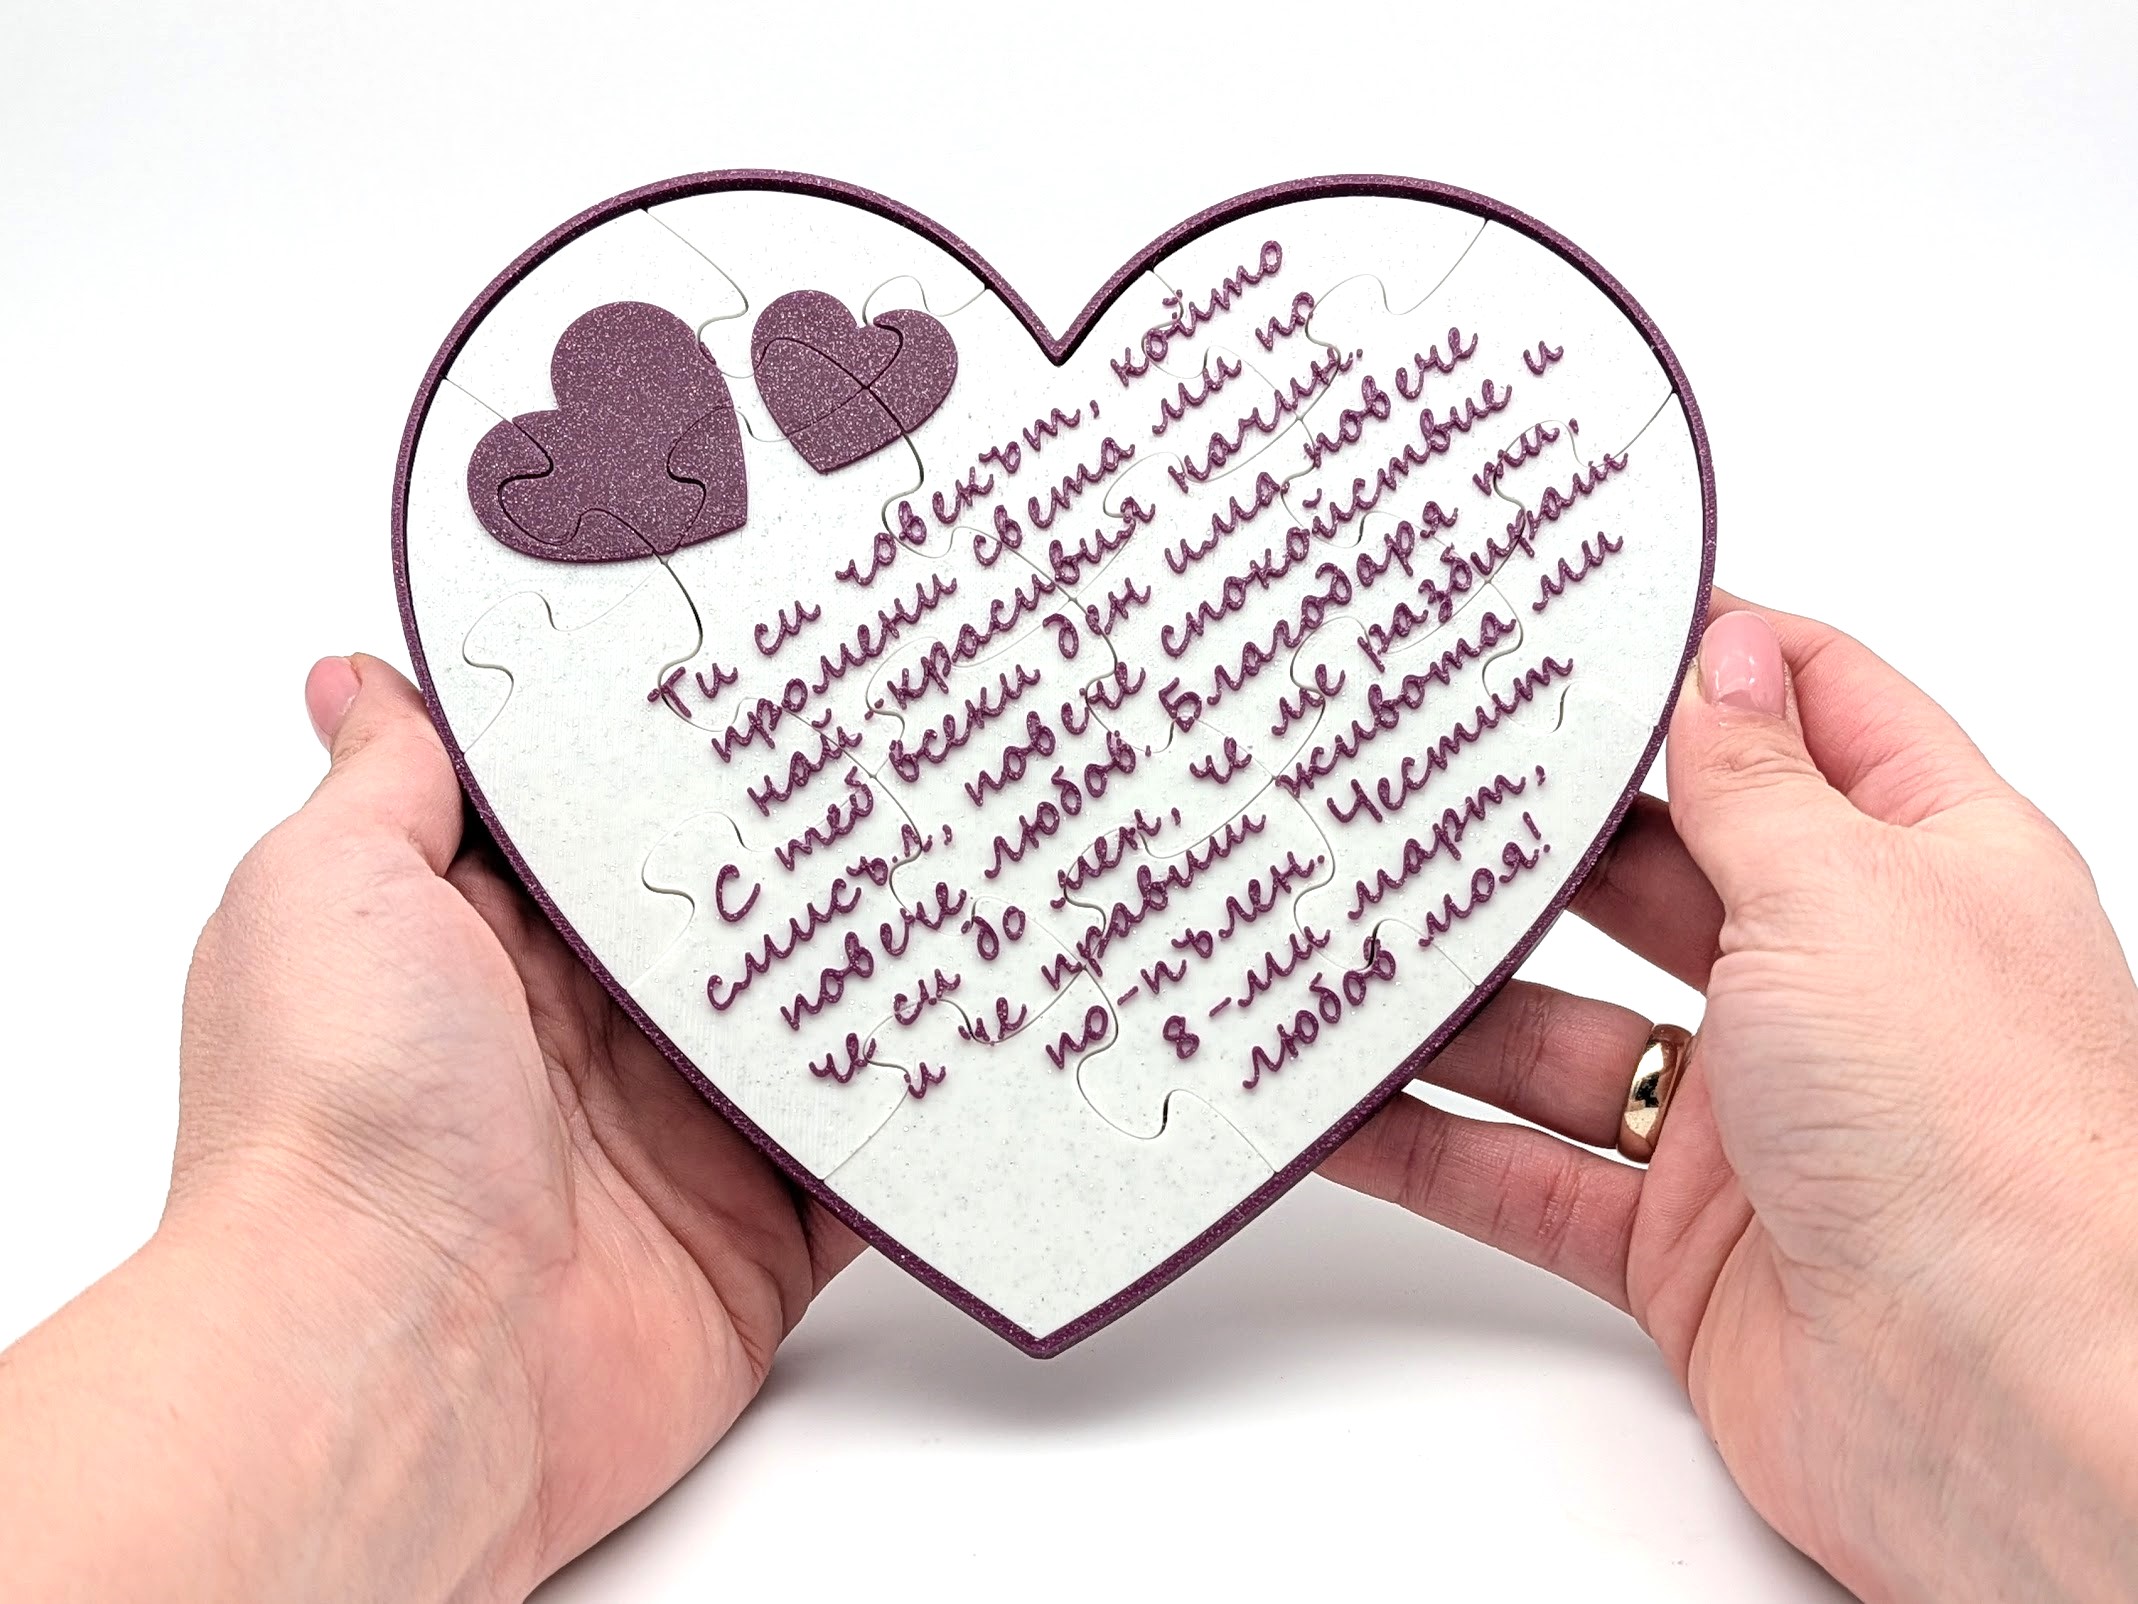 Ти си човекът, който
промени света ми по
най-красивия начин.
С теб всеки ден има повече
смисъл, повече спокойствие и
повече любов. Благодаря ти,
че си до мен, че ме разбираш
и че правиш живота ми
по-пълен. Честит
8-ми март,
любов моя!